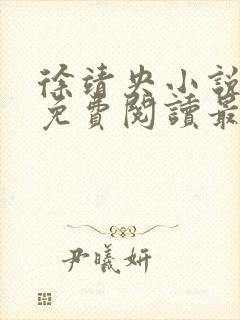 徐靖央小說
免費閱讀最
尹曦妍